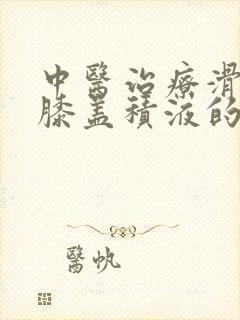 中醫治療滑
膝蓋積液的
醫帆